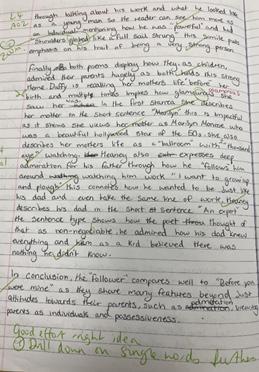 L4
AO2
through talking about his work and what he looked like
as a young man so the reader can see him more as
an individual mentioning how he was "powerful" and had
"Shoulders globed like a full sail strung" this simile puts
emphasis on his trait of being a very strong person.
Finally both poems display how they, as children,
admired their parents hugely as both holds this strong
theme Duffy is recalling her mothers life before
birth and multiple times implies how glamorous
she was in the first stanza she describes
her mother in the short sentence "Marilyn" this is impactful
as it shows she views her mother as Marilyn Monroe who
was a beautiful hollywood star of the 50s. she also
describes her mothers life as a "ballroom" with "thousand
eyes" watching. Heaney also expresses deep
admiration for his father through how he "follows" him
around watching him work "I want to growup
and plough" this connotes how he wanted to be just like
his dad and even take the same line of work, Heaney
describes his dad in the short sentence "An expert"
the sentence type shows how the poet thought of
that as non-negotiable, he admired how his dad knew
everything and as a kid believed there was
nothing he didn't know.
In conclusion, the "follower" compares well to "Before you
were mine" as they share many features beyond just
attitudes towards their parents, such as admiration,
parents as individuals and possessiveness.
Good effort right idea
Drill down on single words further